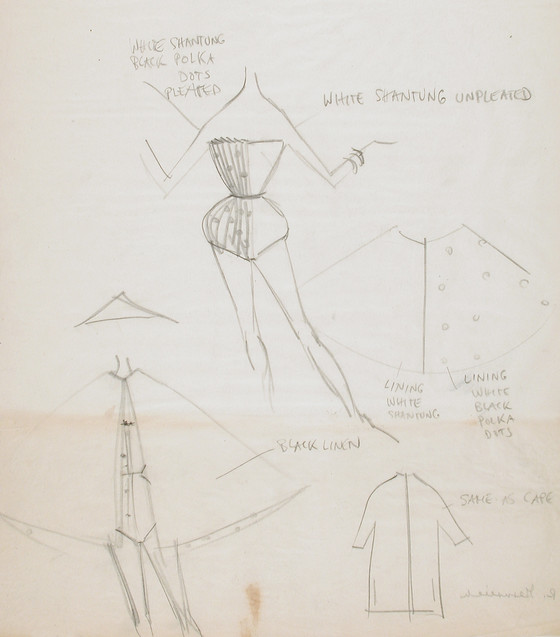 WHITE SHANTUNG
BLACK POLKA
DOTS
PLEATED
WHITE SHANTUNG UNPLEATED
LINING
WHITE
SHANTUNG
LINING
WHITE
BLACK
POLKA
DOTS
BLACK LINEN
SAME AS CAPE